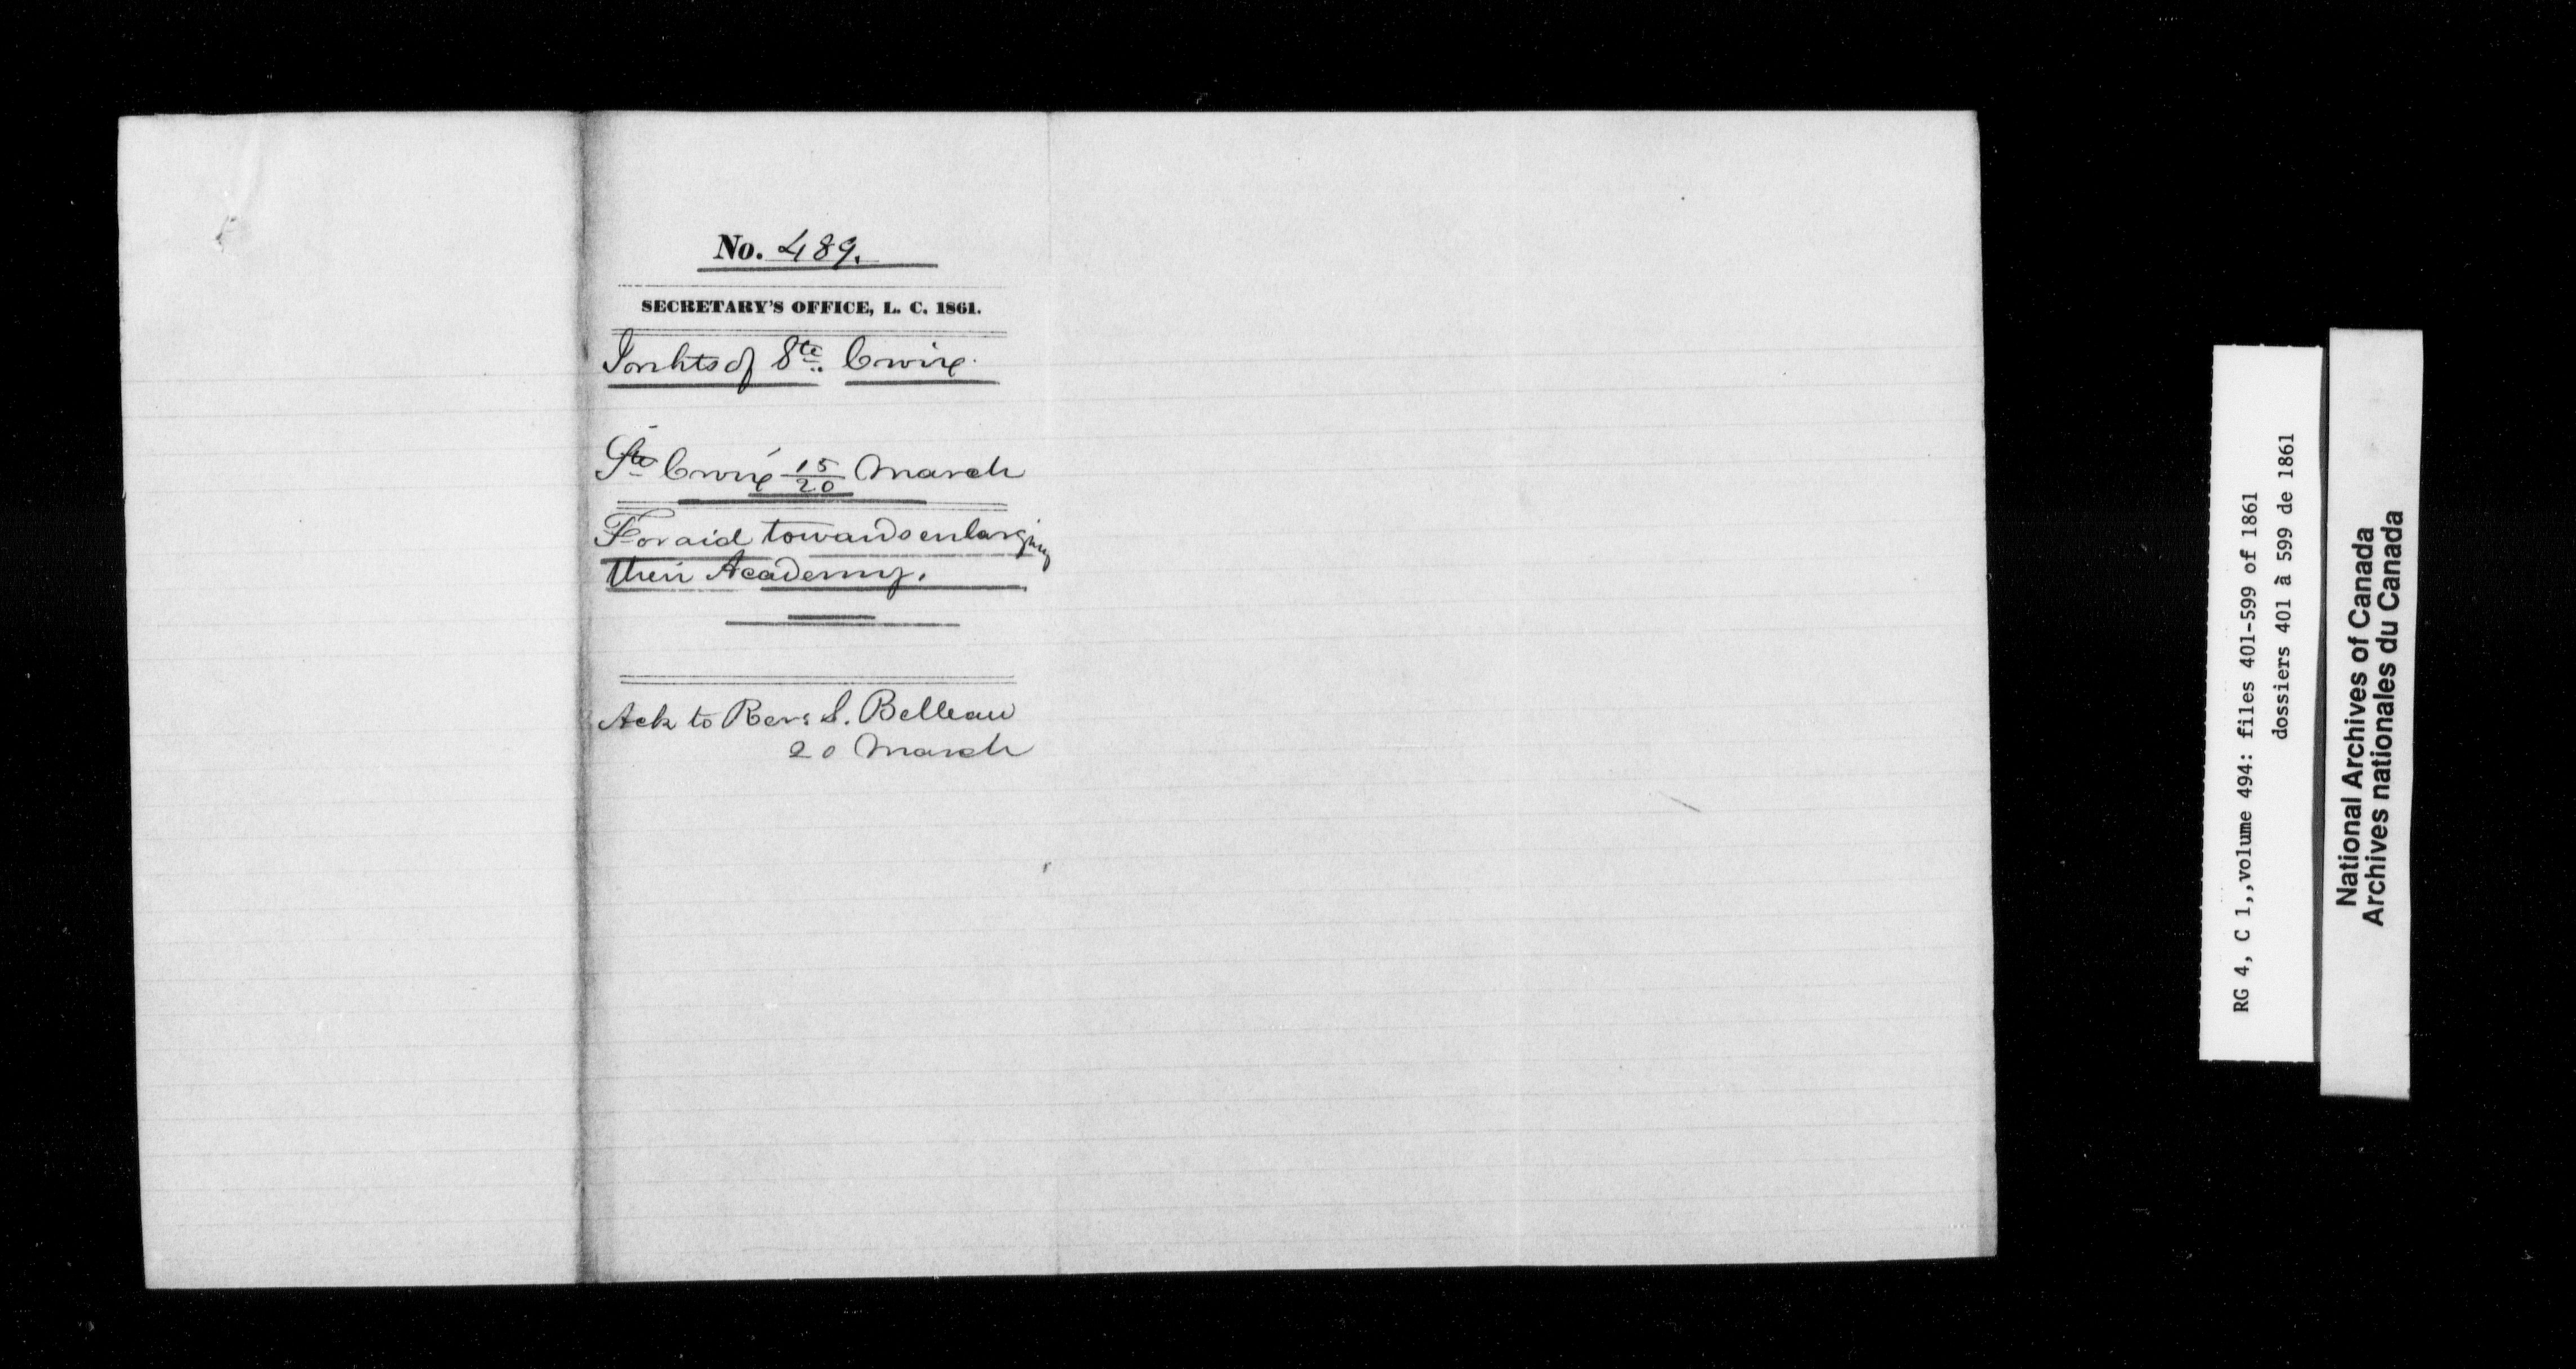 No. 489.
SECRETARY'S OFFICE, L. C. 1861.
Inhts of Ste. Croix.
Ste Croix 15/20 March
For aid towards enlarging
their Academy.
Ack to Revs S. Belleau
20 March
RG 4, C 1,,volume 494: files 401-599 of 1861
dossiers 401 à 599 de 1861
National Archives of Canada
Archives nationales du Canada